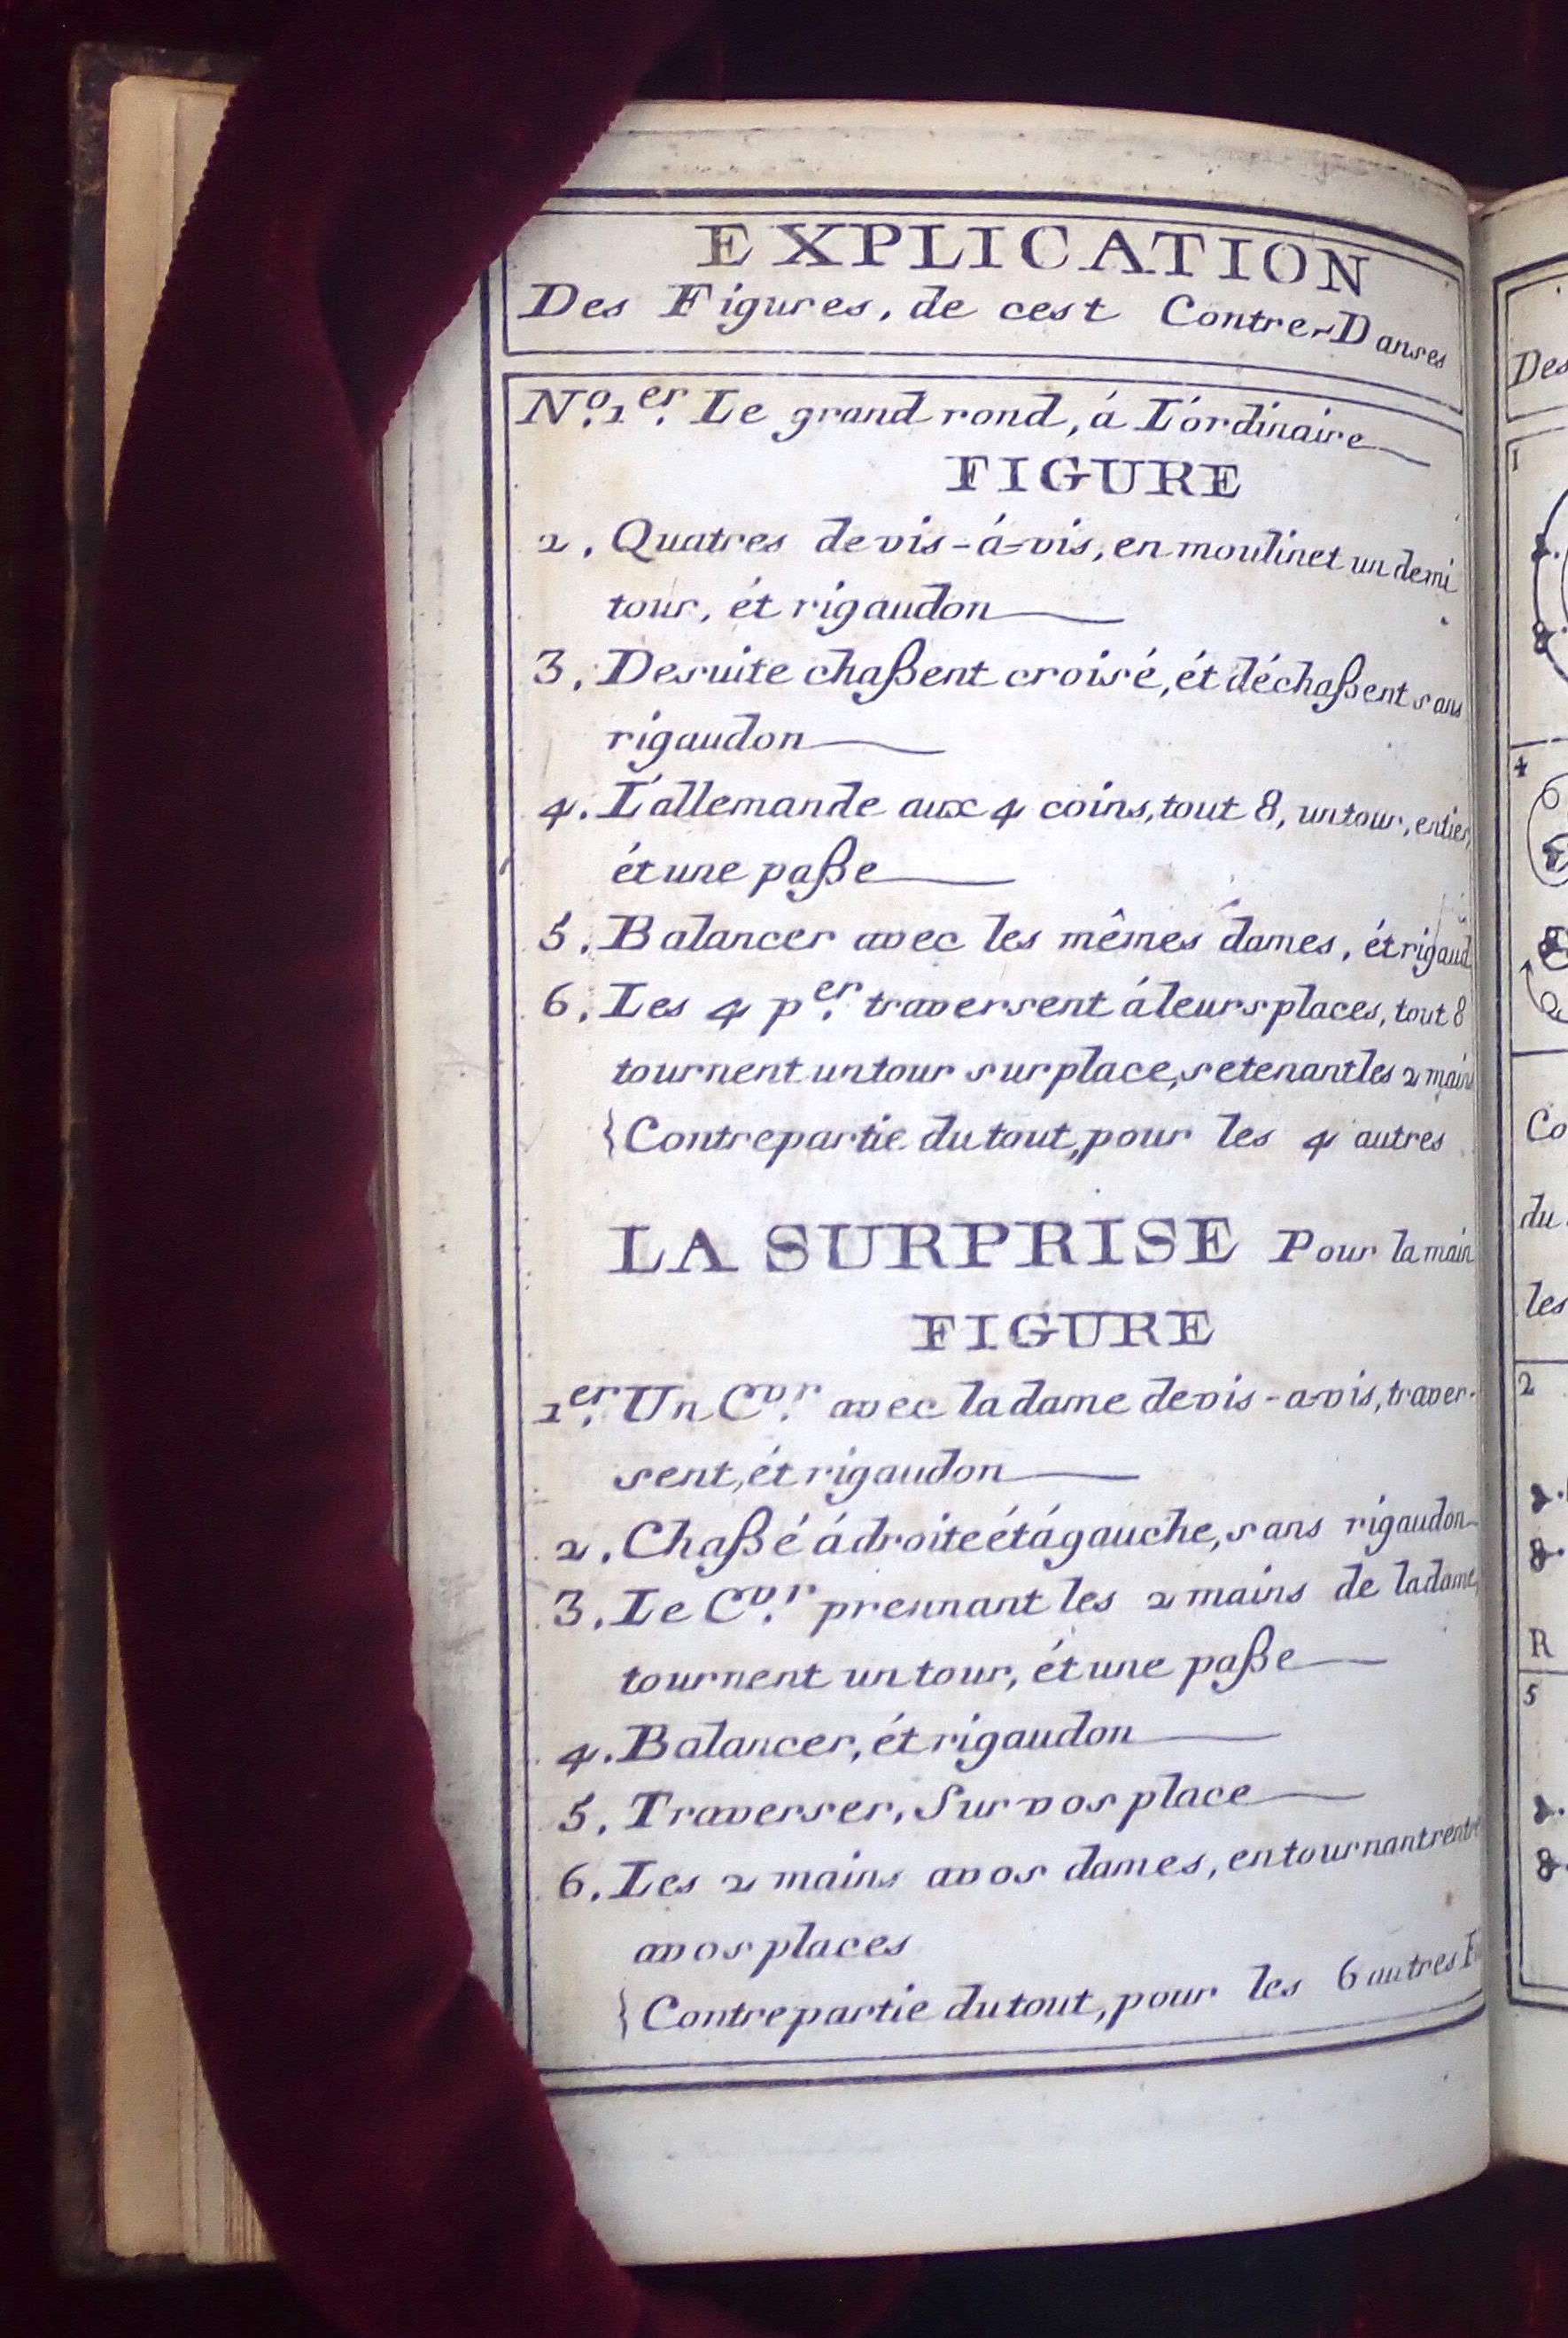 EXPLICATION
Des Figures, de cest Contre-Danses
No. 1er. Le grand rond, á L'ordinaire
FIGURE
2. Quatres de vis-á-vis, en moulinet un demi
tour, ét rigaudon
3. Desuite chaßent croisé, ét déchaßent sans
rigaudon
4. L'allemande aux 4 coins, tout 8, un tour, entier,
ét une paße
5. Balancer avec les mêmes dames, ét rigaud
6. Les 4 per. traversent á leurs places, tout 8
tournent un tour sur place, se tenant les 2 mains
{Contrepartie du tout, pour les 4 autres
LA SURPRISE Pour la main
FIGURE
1er. Un Cvr. avec la dame de vis-a-vis, traver-
sent, ét rigaudon
2. Chaßé á droite ét á gauche, sans rigaudon
3. Le Cvr. prennant les 2 mains de la dame,
tournent un tour, ét une paße
4. Balancer, ét rigaudon
5. Traverser, Sur vos place
6. Les 2 mains a vos dames, en tournant
a vos places
{Contrepartie du tout, pour les 6 autres
Des
1
4
Co
du
les
2
R
5